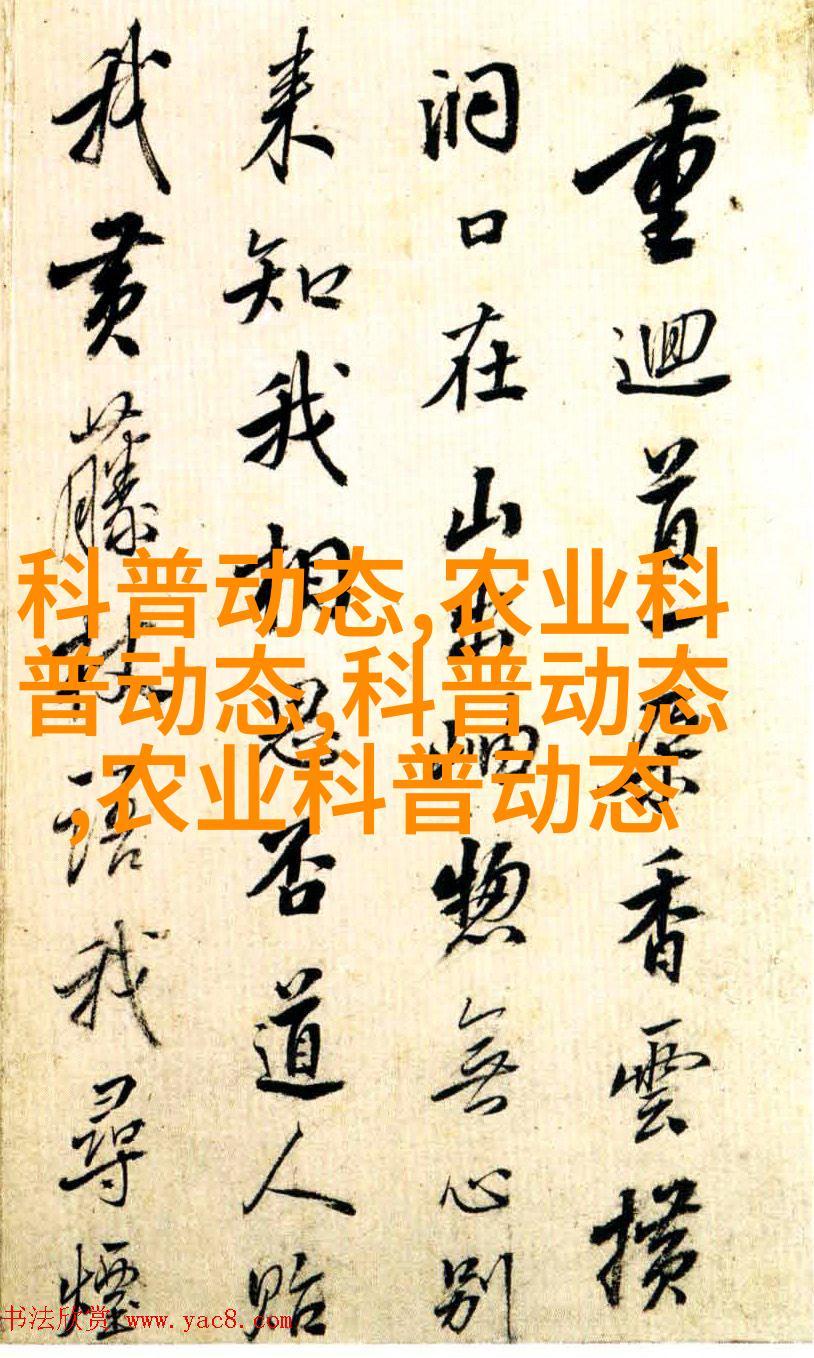 重迴首一香雲横
洞口在山出岫惣無心別
来知我相思否道人貽
我黄藤杖語我尋煙
科普动态,农业科
普动态,科普动态
,农业科普动态
书法欣赏 www.yac8.com